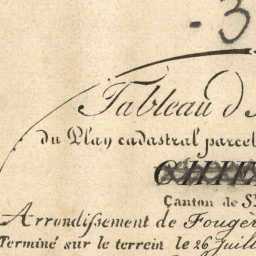 - 3
Tableau d'
du Plan cadastral parcel
Canton de S
Arrondissement de Fougèr
Terminé sur le terrein le 26 Juill